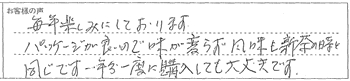 お客様の声
毎年楽しみにしております。
パッケージが良いので味が落らず風味も新茶の時と
同じです。一年分一度に購入しても大丈夫です。